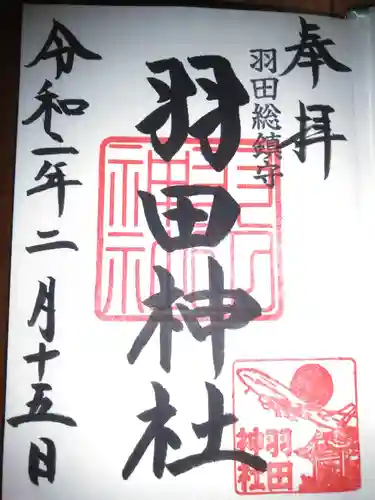 奉拝
羽田総鎮守
羽田神社
令和二年二月十五日
羽田
神社